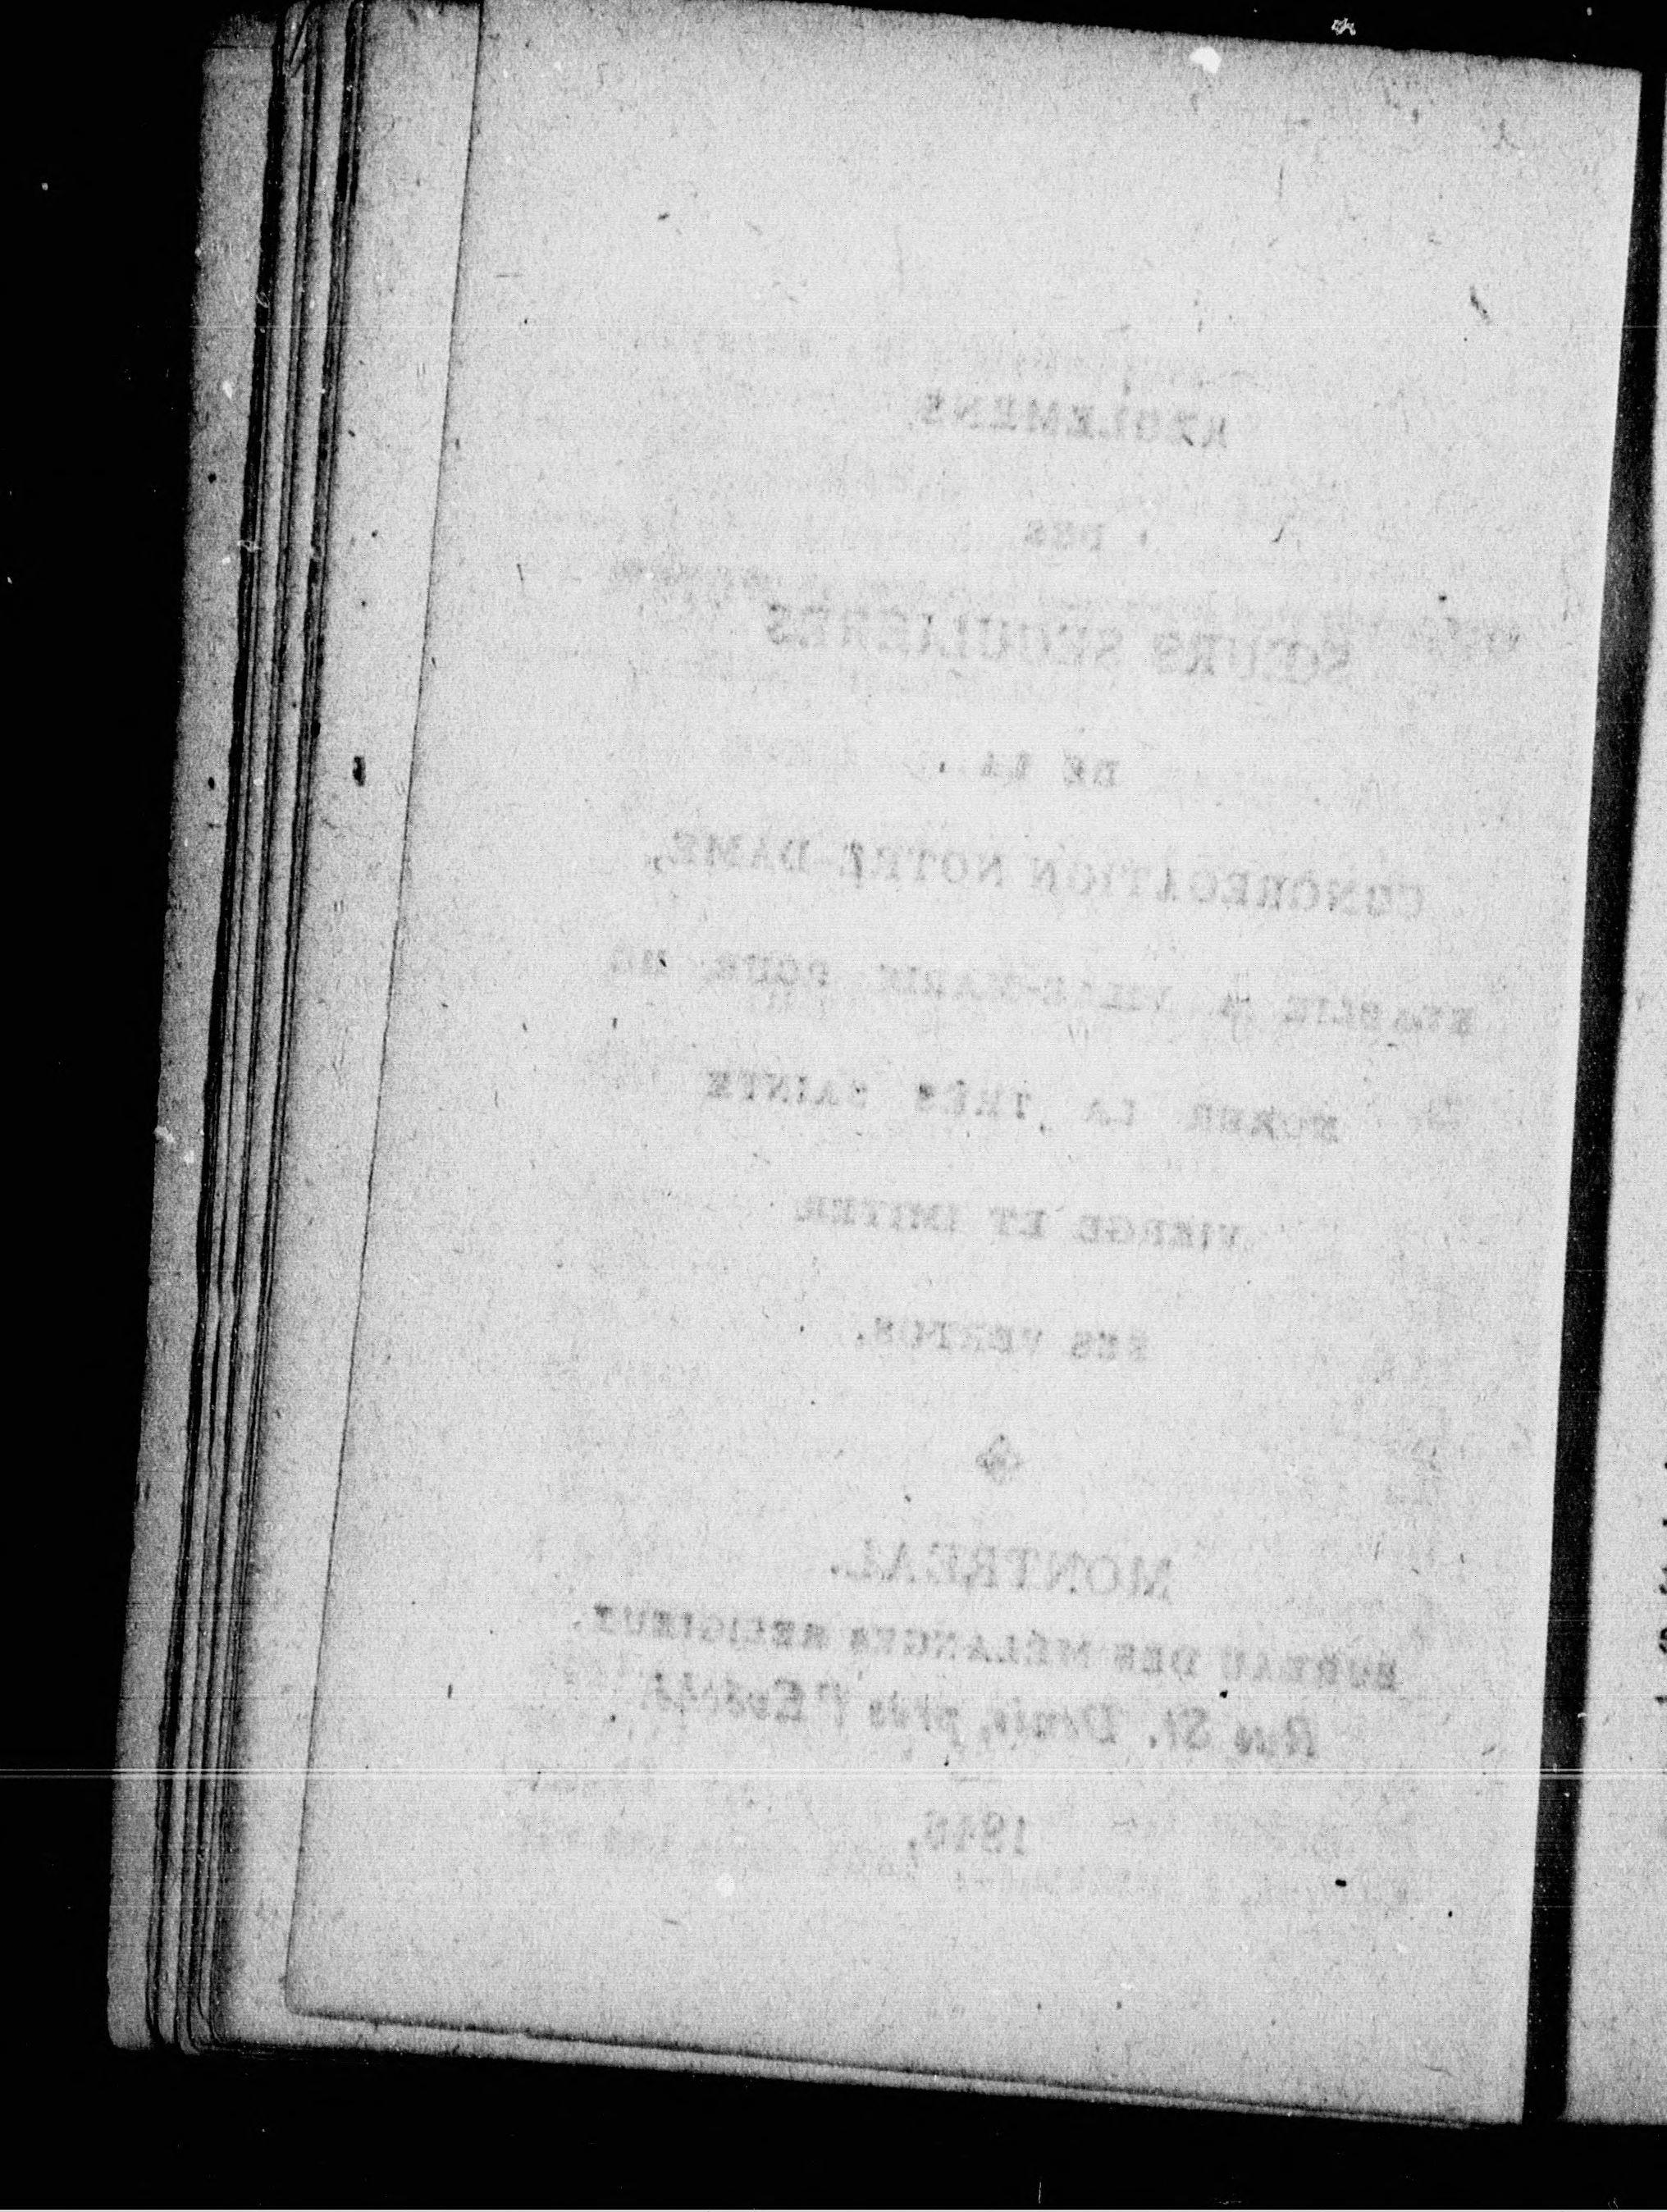 RÈGLEMENS
DES
SŒURS SÉCULIÈRES
DE LA
CONGREGATION NOTRE-DAME,
ETABLIE A VILLE-MARIE POUR
LA TRÈS SAINTE
VIERGE ET IMITER
SES VERTUS.
MONTREAL.
BUREAU DES MÉLANGES RELIGIEUX.
Rue St. Denis, près l'Evêché